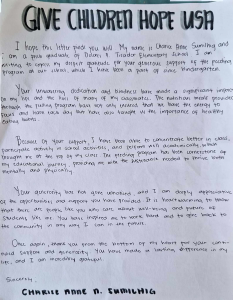 GIVE CHILDREN HOPE USA
I hope this letter finds you well. My name is Charlie Anne Sumilhig and
I am a proud graduate of Elementary School. I am
writing to convey my deepest gratitude for your generous support of the feeding
program at our school, which I have been a part of since Kindergarten.
Your unwavering dedication and kindness have made a significant impact
on my life and the lives of many of my classmates. The nutritious meals provided
through the feeding program not only ensured that we have the energy to
focus and learn each day but have also taught us the importance of healthy
eating habits.
Because of your support, I have been able to concentrate better in class,
participate actively in school activities, and perform well academically, which
brought me at the top of my class. The feeding program has been cornerstone of
my educational journey, providing me with the sustenance needed to thrive both
mentally and physically.
Your generosity has not gone unnoticed, and I am deeply appreciative
of the opportunities and support you have provided. It is heartwarming to know
that there are people like you who care about the well-being and future of
students like me. You have inspired me to work hard and to give back to
the community in any way I can in the future.
Once again, thank you from the bottom of my heart for your conti-
nued support and generosity. You have made a lasting difference in my
life, and I am incredibly grateful.
Sincerely,
CHARLIE ANNE N. SUMILHIG